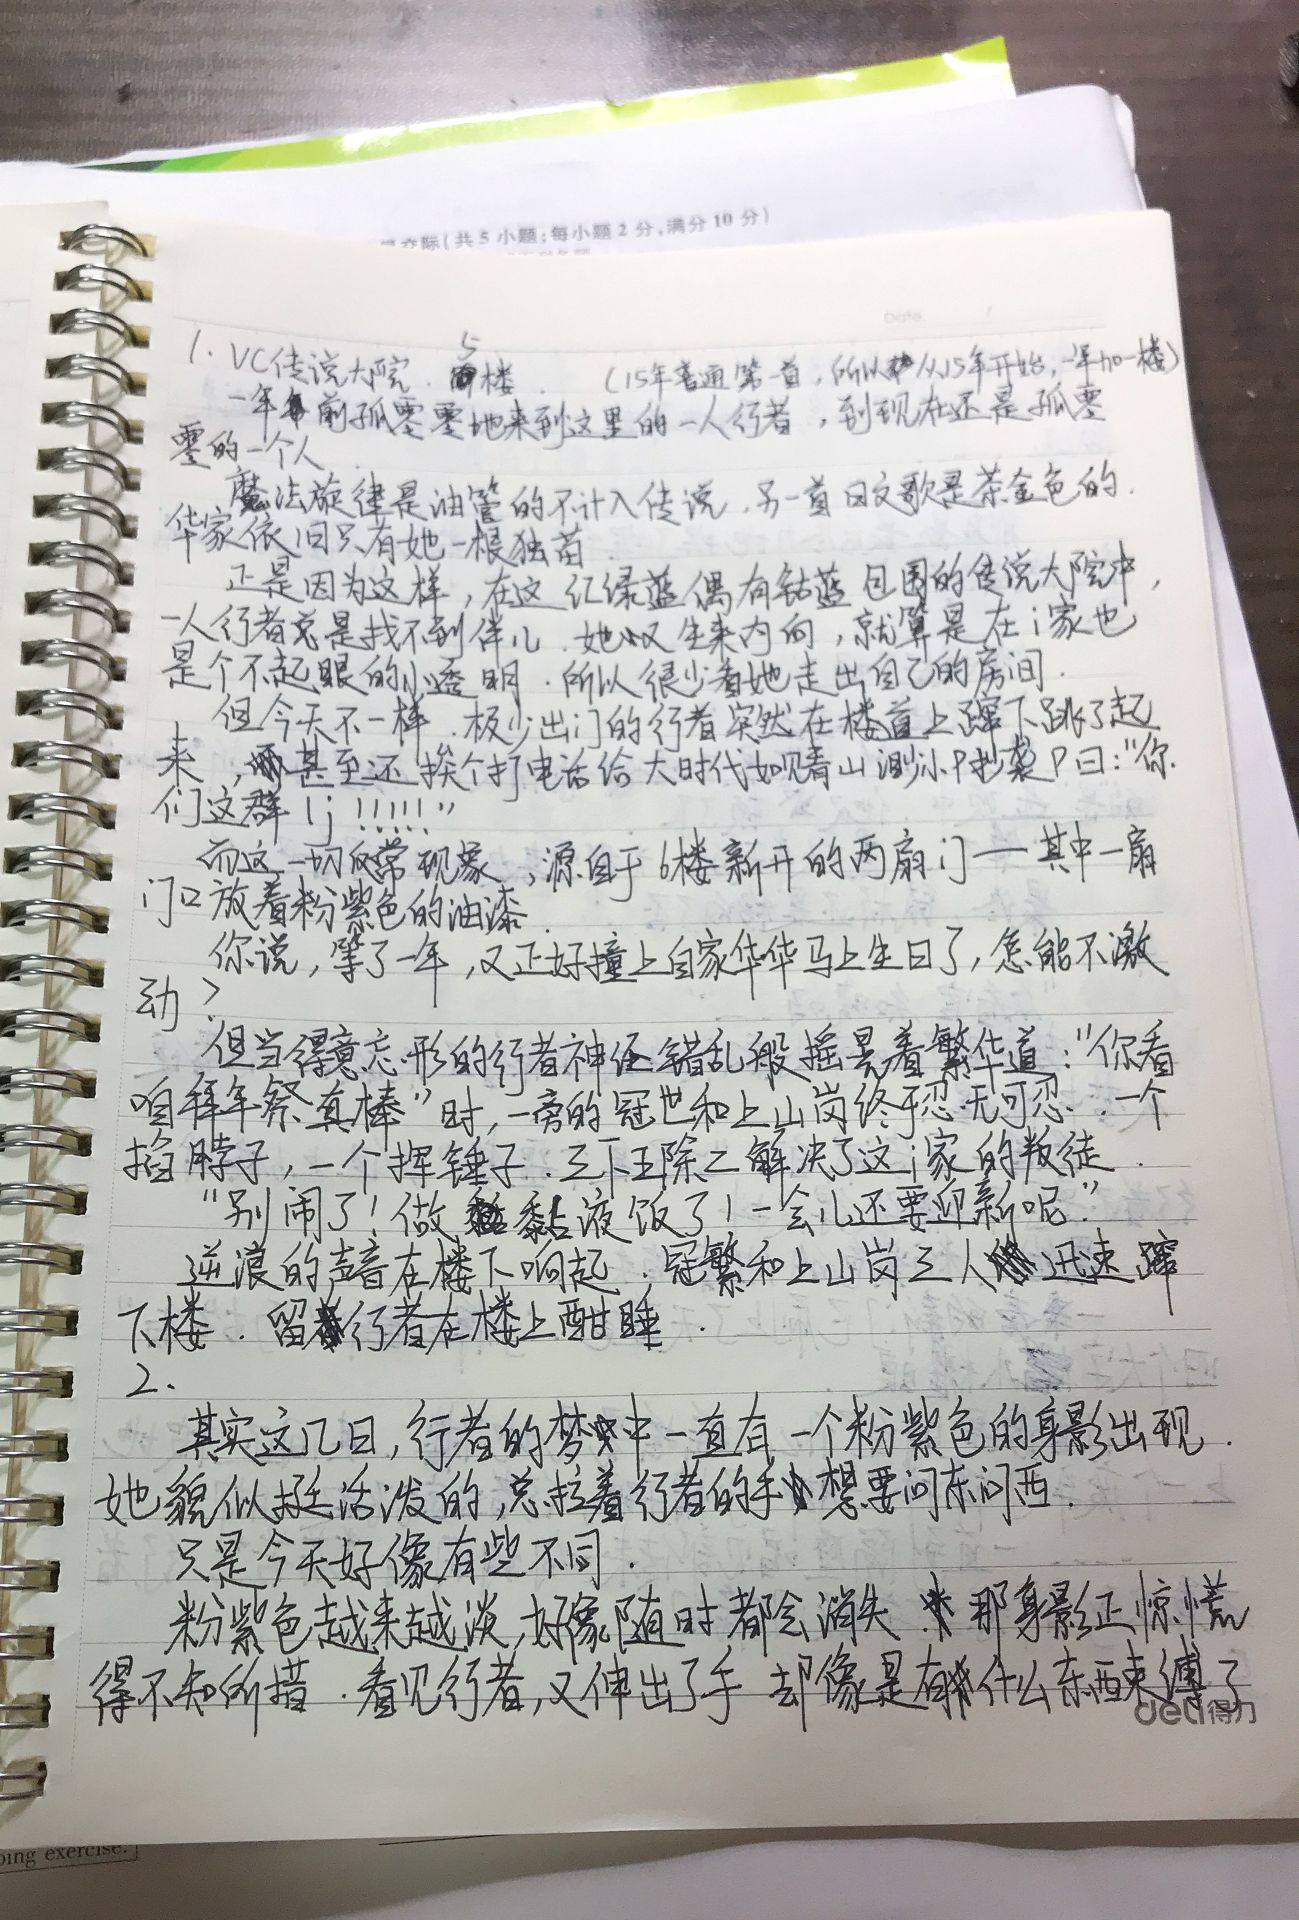 交际(共5小题;每小题2分,满分10分)
Date. /
1. VC传说大院. 5楼. (15年普通第一首,所以从15年开始,一年加一楼)
一年前孤零零地来到这里的一人行者,到现在还是孤零
零的一个人.
魔法旋律是油管的不计入传说.另一首日文歌是茶金色的.
华家依旧只有她一根独苗.
正是因为这样,在这红绿蓝偶有钴蓝包围的传说大院中,
一人行者总是找不到伴儿.她又生来内向,就算是在i家也
是个不起眼的小透明.所以很少看她走出自己的房间.
但今天不一样.极少出门的行者突然在楼道上蹿下跳了起
来,甚至还挨个打电话给大时代如见青山渺小P抄袭P曰:"你
们这群lj!!!!!"
而这一切反常现象,源自于6楼新开的两扇门——其中一扇
门口放着粉紫色的油漆.
你说,等了一年,又正好撞上自家华华马上生日了,怎能不激
动?
但当得意忘形的行者神经错乱般摇晃着繁华道:"你看
咱拜年祭真棒"时,一旁的冠世和上山岗终于忍无可忍.一个
掐脖子,一个挥锤子.三下五除二解决了这i家的叛徒.
"别闹了!做黏液饭了!一会儿还要迎新呢"
逆浪的声音在楼下响起.冠繁和上山岗三人迅速蹿
下楼.留行者在楼上酣睡.
2.
其实这几日,行者的梦中一直有一个粉紫色的身影出现.
她貌似挺活泼的,总拉着行者的手想要问东问西.
只是今天好像有些不同.
粉紫色越来越淡,好像随时都会消失.那身影正惊慌
得不知所措.看见行者,又伸出了手 却像是有什么东西束缚了
deli得力
ping exercise.